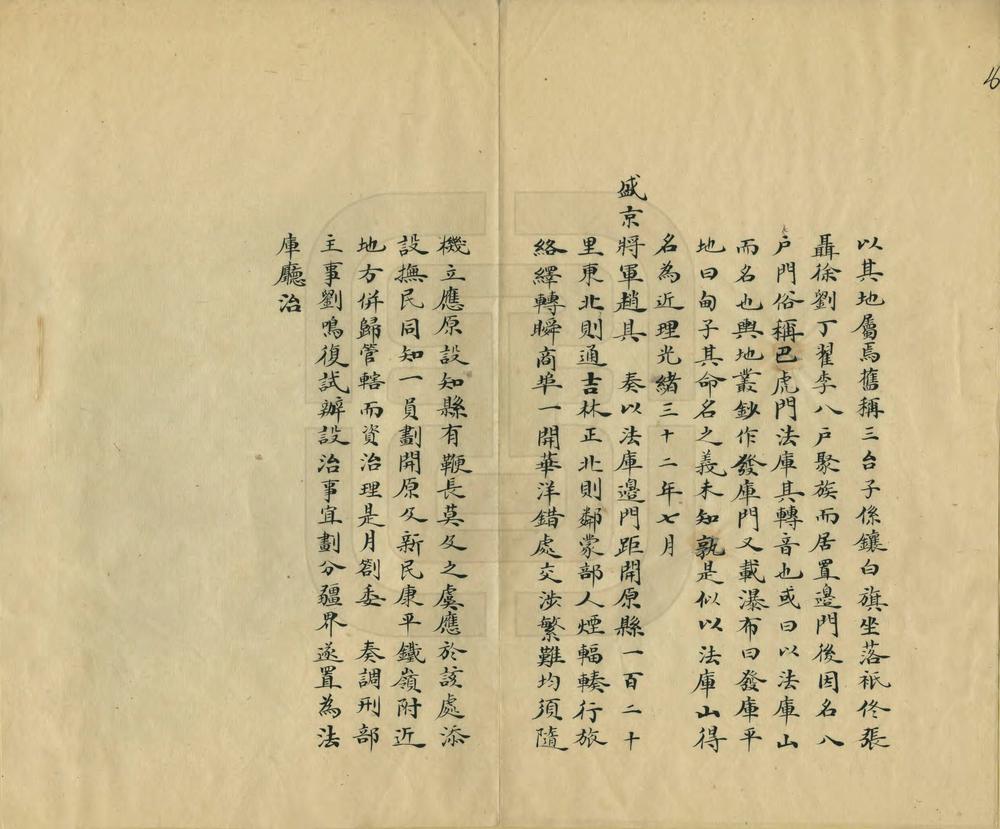 以其地屬焉舊稱三台子係鑲白旗坐落祇佟張
聶徐劉丁翟李八戶聚族而居置邊門後因名八
戶門俗稱巴虎門法庫其轉音也或曰以法庫山
而名也輿地叢鈔作發庫門又載瀑布曰發庫平
地曰甸子其命名之義未知孰是似以法庫山得
名為近理光緒三十二年七月
盛京將軍趙具 奏以法庫邊門距開原縣一百二十
里東北則通吉林正北則鄰蒙部人煙輻輳行旅
絡繹轉瞬商埠一開華洋錯處交涉繁難均須隨
機立應原設知縣有鞭長莫及之虞應於該處添
設撫民同知一員劃開原及新民康平鐵嶺附近
地方併歸管轄而資治理是月劄委 奏調刑部
主事劉鳴復試辦設治事宜劃分疆界遂置為法
庫廳治